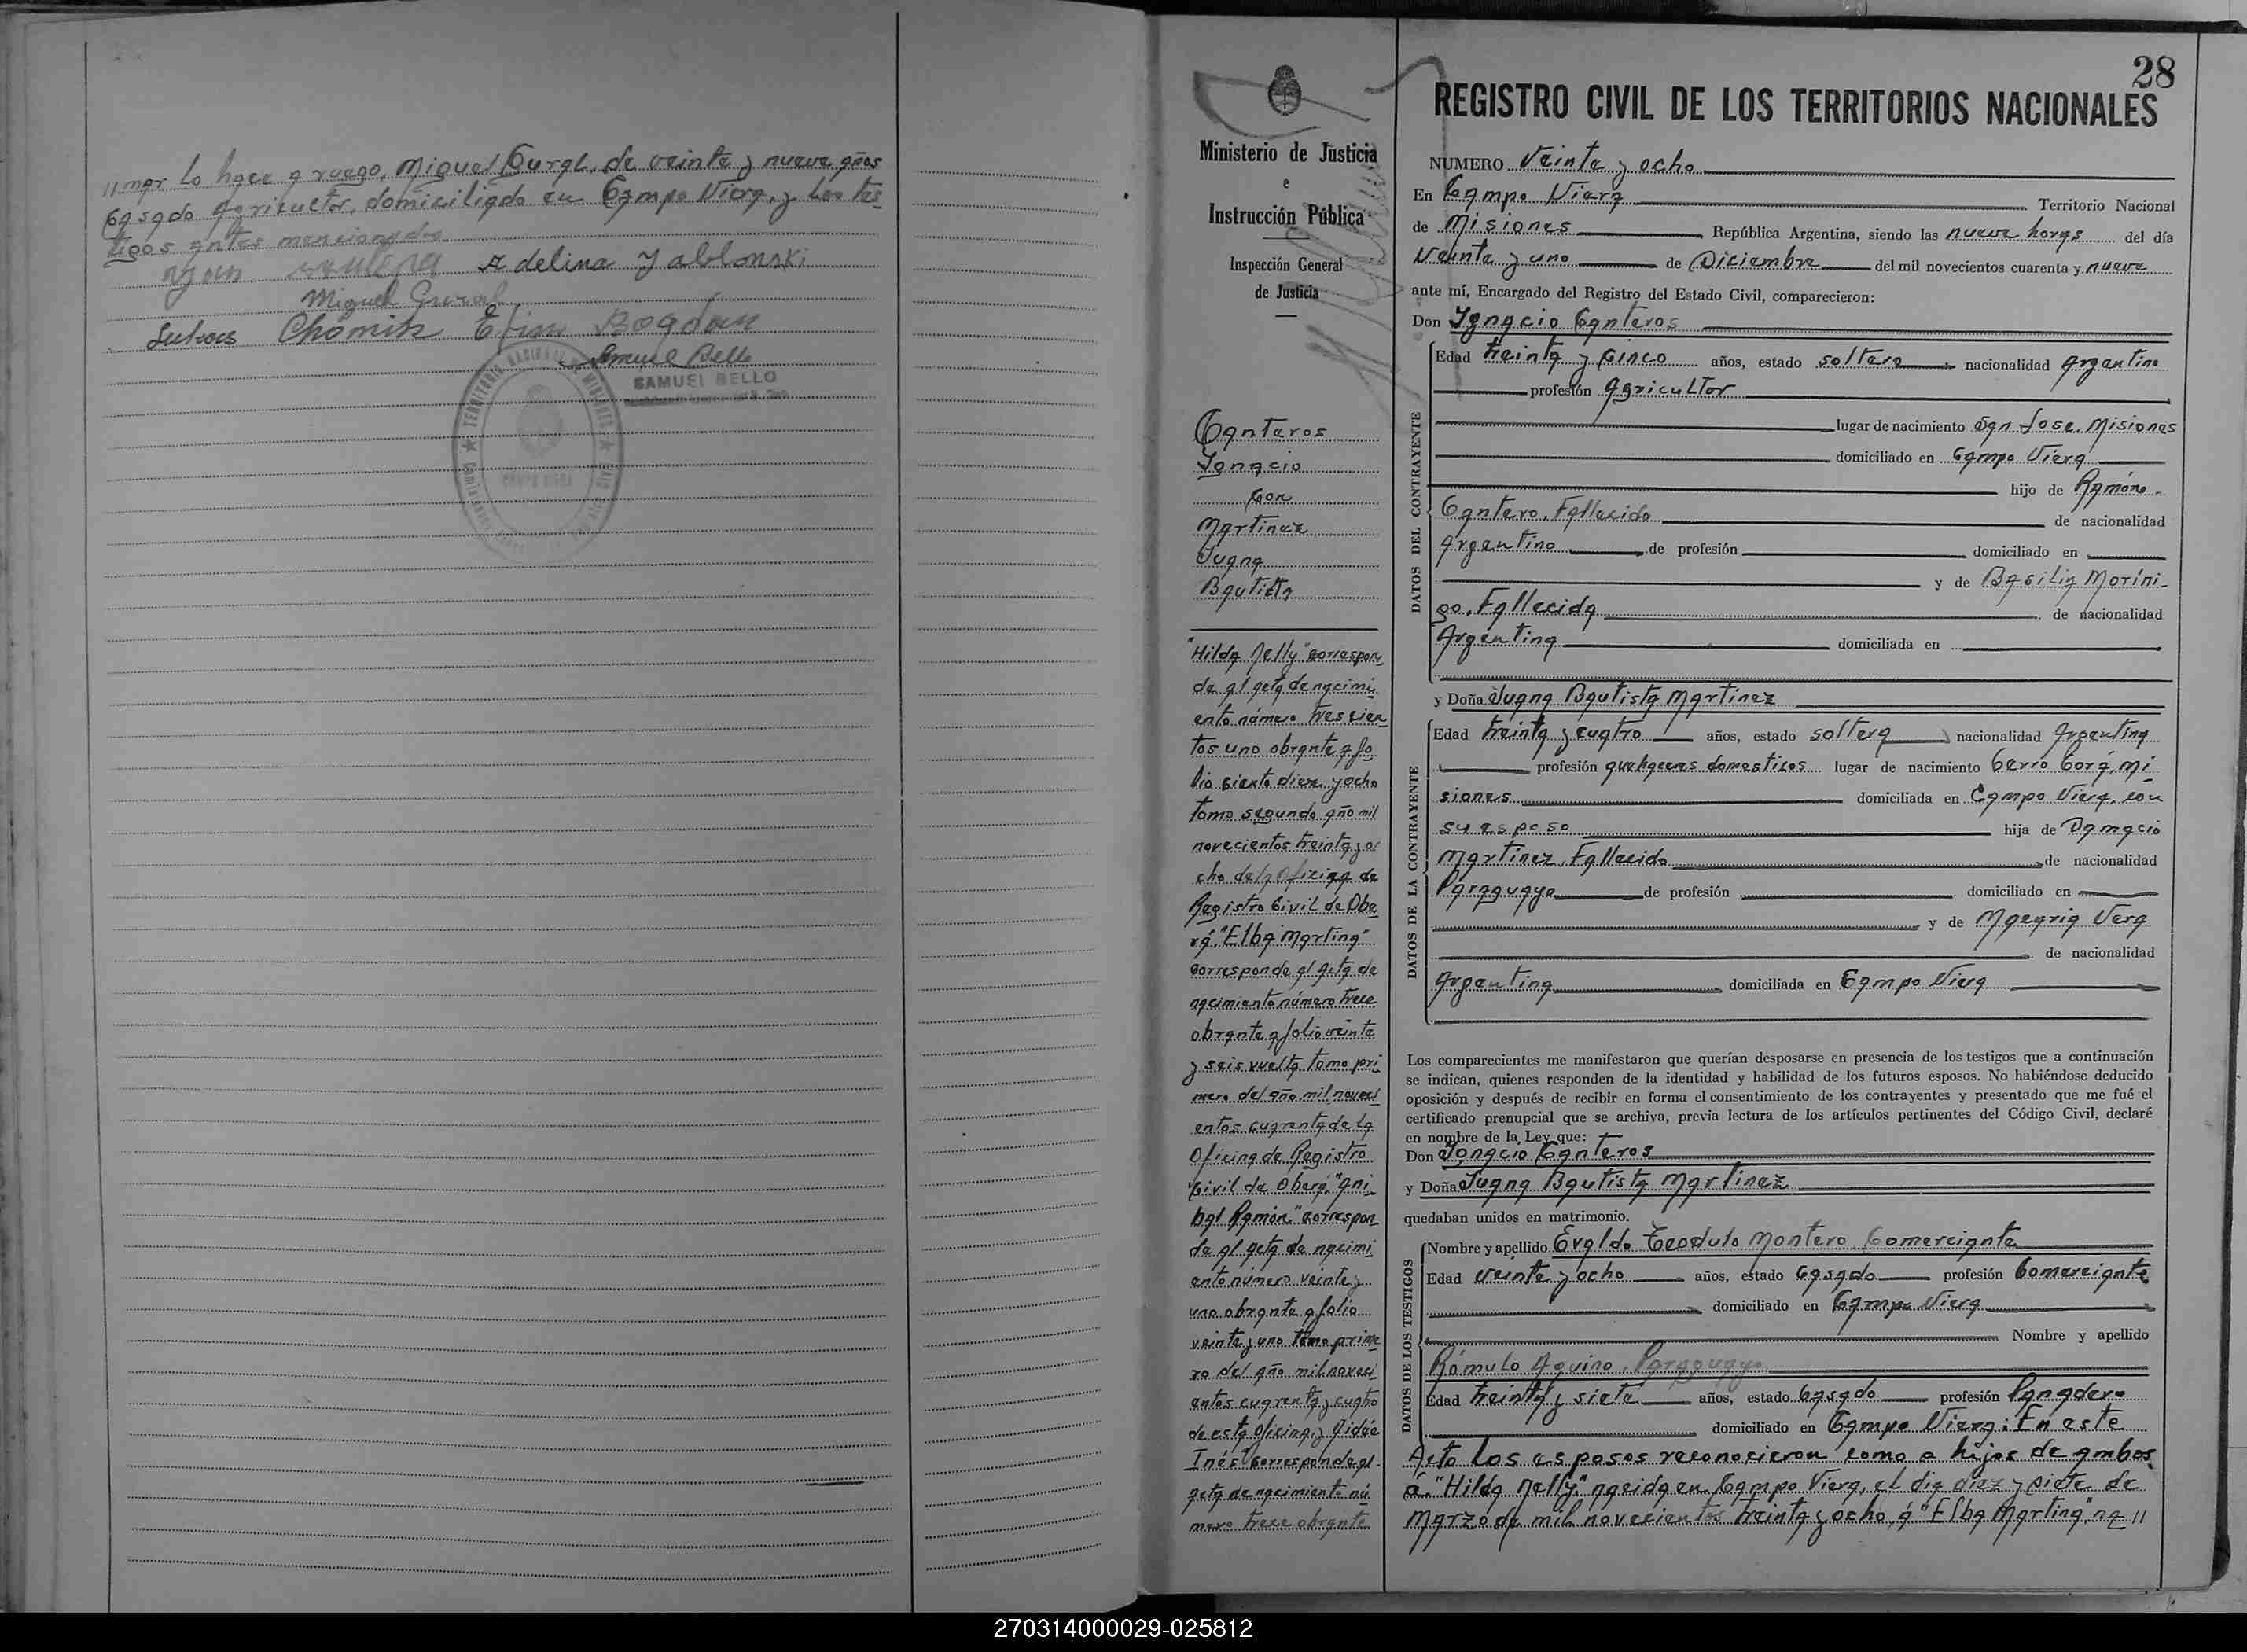 //mar lo hace a ruego, Miguel Gural, de veinte y nueve años
Casado Agricultor, domiciliado en Campo Viera, y los tes-
tigos antes mencionados
Adelina Jablonski
Miguel Gural
Chomik Efim Bogdan
Samuel Bello
SAMUEL BELLO
28
Ministerio de Justicia
e
Instrucción Pública
Inspección General
de Justicia
Canteros
Ignacio
Con
Martinez
Juana
Bautista
"Hilda Nelly" correspon-
de al acta de nacimi-
ento número trescien-
tos uno obrante a fo-
lio ciento diez y ocho
tomo segundo año mil
novecientos treinta y o-
cho de la Oficina de
Registro Civil de Obe-
rá, "Elba Martina"
corresponde al acta de
nacimiento número trece
obrante a folio veinte
y seis vuelta tomo pri-
mero del año mil noveci-
entos cuarenta de la
Oficina de Registro
Civil de Oberá, "Ani-
bal Ramón" correspon-
de al acta de nacimi-
ento número veinte y
uno obrante a folio
veinte y uno tomo prime-
ro del año mil noveci-
entos cuarenta y cuatro
de esta Oficina, y Aidée
Inés" corresponde al
acta de nacimiento nú-
mero trece obrante
REGISTRO CIVIL DE LOS TERRITORIOS NACIONALES
NUMERO Veinte y ocho
En Campo Viera Territorio Nacional
de Misiones República Argentina, siendo las nueve horas del día
Veinte y uno de Diciembre del mil novecientos cuarenta y nueve
ante mí, Encargado del Registro del Estado Civil, comparecieron:
Don Ignacio Canteros
DATOS DEL CONTRAYENTE
Edad treinta y cinco años, estado soltero nacionalidad Argentino
profesión Agricultor
lugar de nacimiento San Jose, Misiones
domiciliado en Campo Viera
hijo de Ramón
Cantero, Fallecido de nacionalidad
Argentino de profesión domiciliado en
y de Basilia Moríni-
go, Fallecida de nacionalidad
Argentina domiciliada en
y Doña Juana Bautista Martinez
DATOS DE LA CONTRAYENTE
Edad treinta y cuatro años, estado soltera nacionalidad Argentina
profesión quehaceres domesticos lugar de nacimiento Cerro Corá, Mi-
siones domiciliada en Campo Viera, con
su esposo hija de Damacio
Martinez, Fallecido de nacionalidad
Paraguayo de profesión domiciliado en
y de Macaria Vera
de nacionalidad
Argentina domiciliada en Campo Viera
Los comparecientes me manifestaron que querían desposarse en presencia de los testigos que a continuación
se indican, quienes responden de la identidad y habilidad de los futuros esposos. No habiéndose deducido
oposición y después de recibir en forma el consentimiento de los contrayentes y presentado que me fué el
certificado prenupcial que se archiva, previa lectura de los artículos pertinentes del Código Civil, declaré
en nombre de la Ley que:
Don Ignacio Canteros
y Doña Juana Bautista Martinez
quedaban unidos en matrimonio.
DATOS DE LOS TESTIGOS
Nombre y apellido Evaldo Teodulo Montero Comerciante
Edad veinte y ocho años, estado casado profesión Comerciante
domiciliado en Campo Viera
Nombre y apellido
Rómulo Aquino, Paraguayo
Edad treinta y siete años, estado casado profesión Panadero
domiciliado en Campo Viera: En este
Acto los esposos reconocieron como a hijos de ambos
á "Hilda Nelly" nacida en Campo Viera, el dia diez y siete de
Marzo de mil novecientos treinta y ocho, á "Elba Martina", na //
270314000029-025812